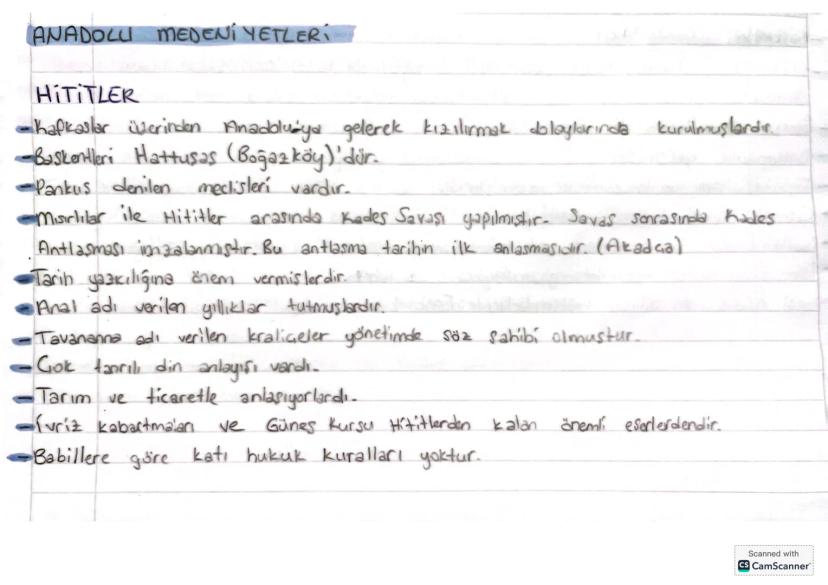 ANADOLU MEDENİYETLERİ
HİTİTLER
- Kafkaslar üzerinden Anadolu'ya gelerek Kızılırmak dolaylarında kurulmuşlardır.
- Başkentleri Hattuşaş (Boğazköy)'dür.
- Pankuş denilen meclisleri vardır.
- Mısırlılar ile Hititler arasında Kadeş Savaşı yapılmıştır. Savaş sonrasında Kadeş
Antlaşması imzalanmıştır. Bu antlaşma tarihin ilk anlaşmasıdır. (Akadca)
- Tarih yazıcılığına önem vermişlerdir.
- Anal adı verilen yıllıklar tutmuşlardır.
- Tavananna adı verilen kraliçeler yönetimde söz sahibi olmuştur.
- Çok tanrılı din anlayışı vardı.
- Tarım ve ticaretle anlaşıyorlardı.
- İvriz kabartmaları ve Güneş Kursu Hititlerden kalan önemli eserlerdendir.
- Babillere göre katı hukuk kuralları yoktur.
Scanned with
CS CamScanner